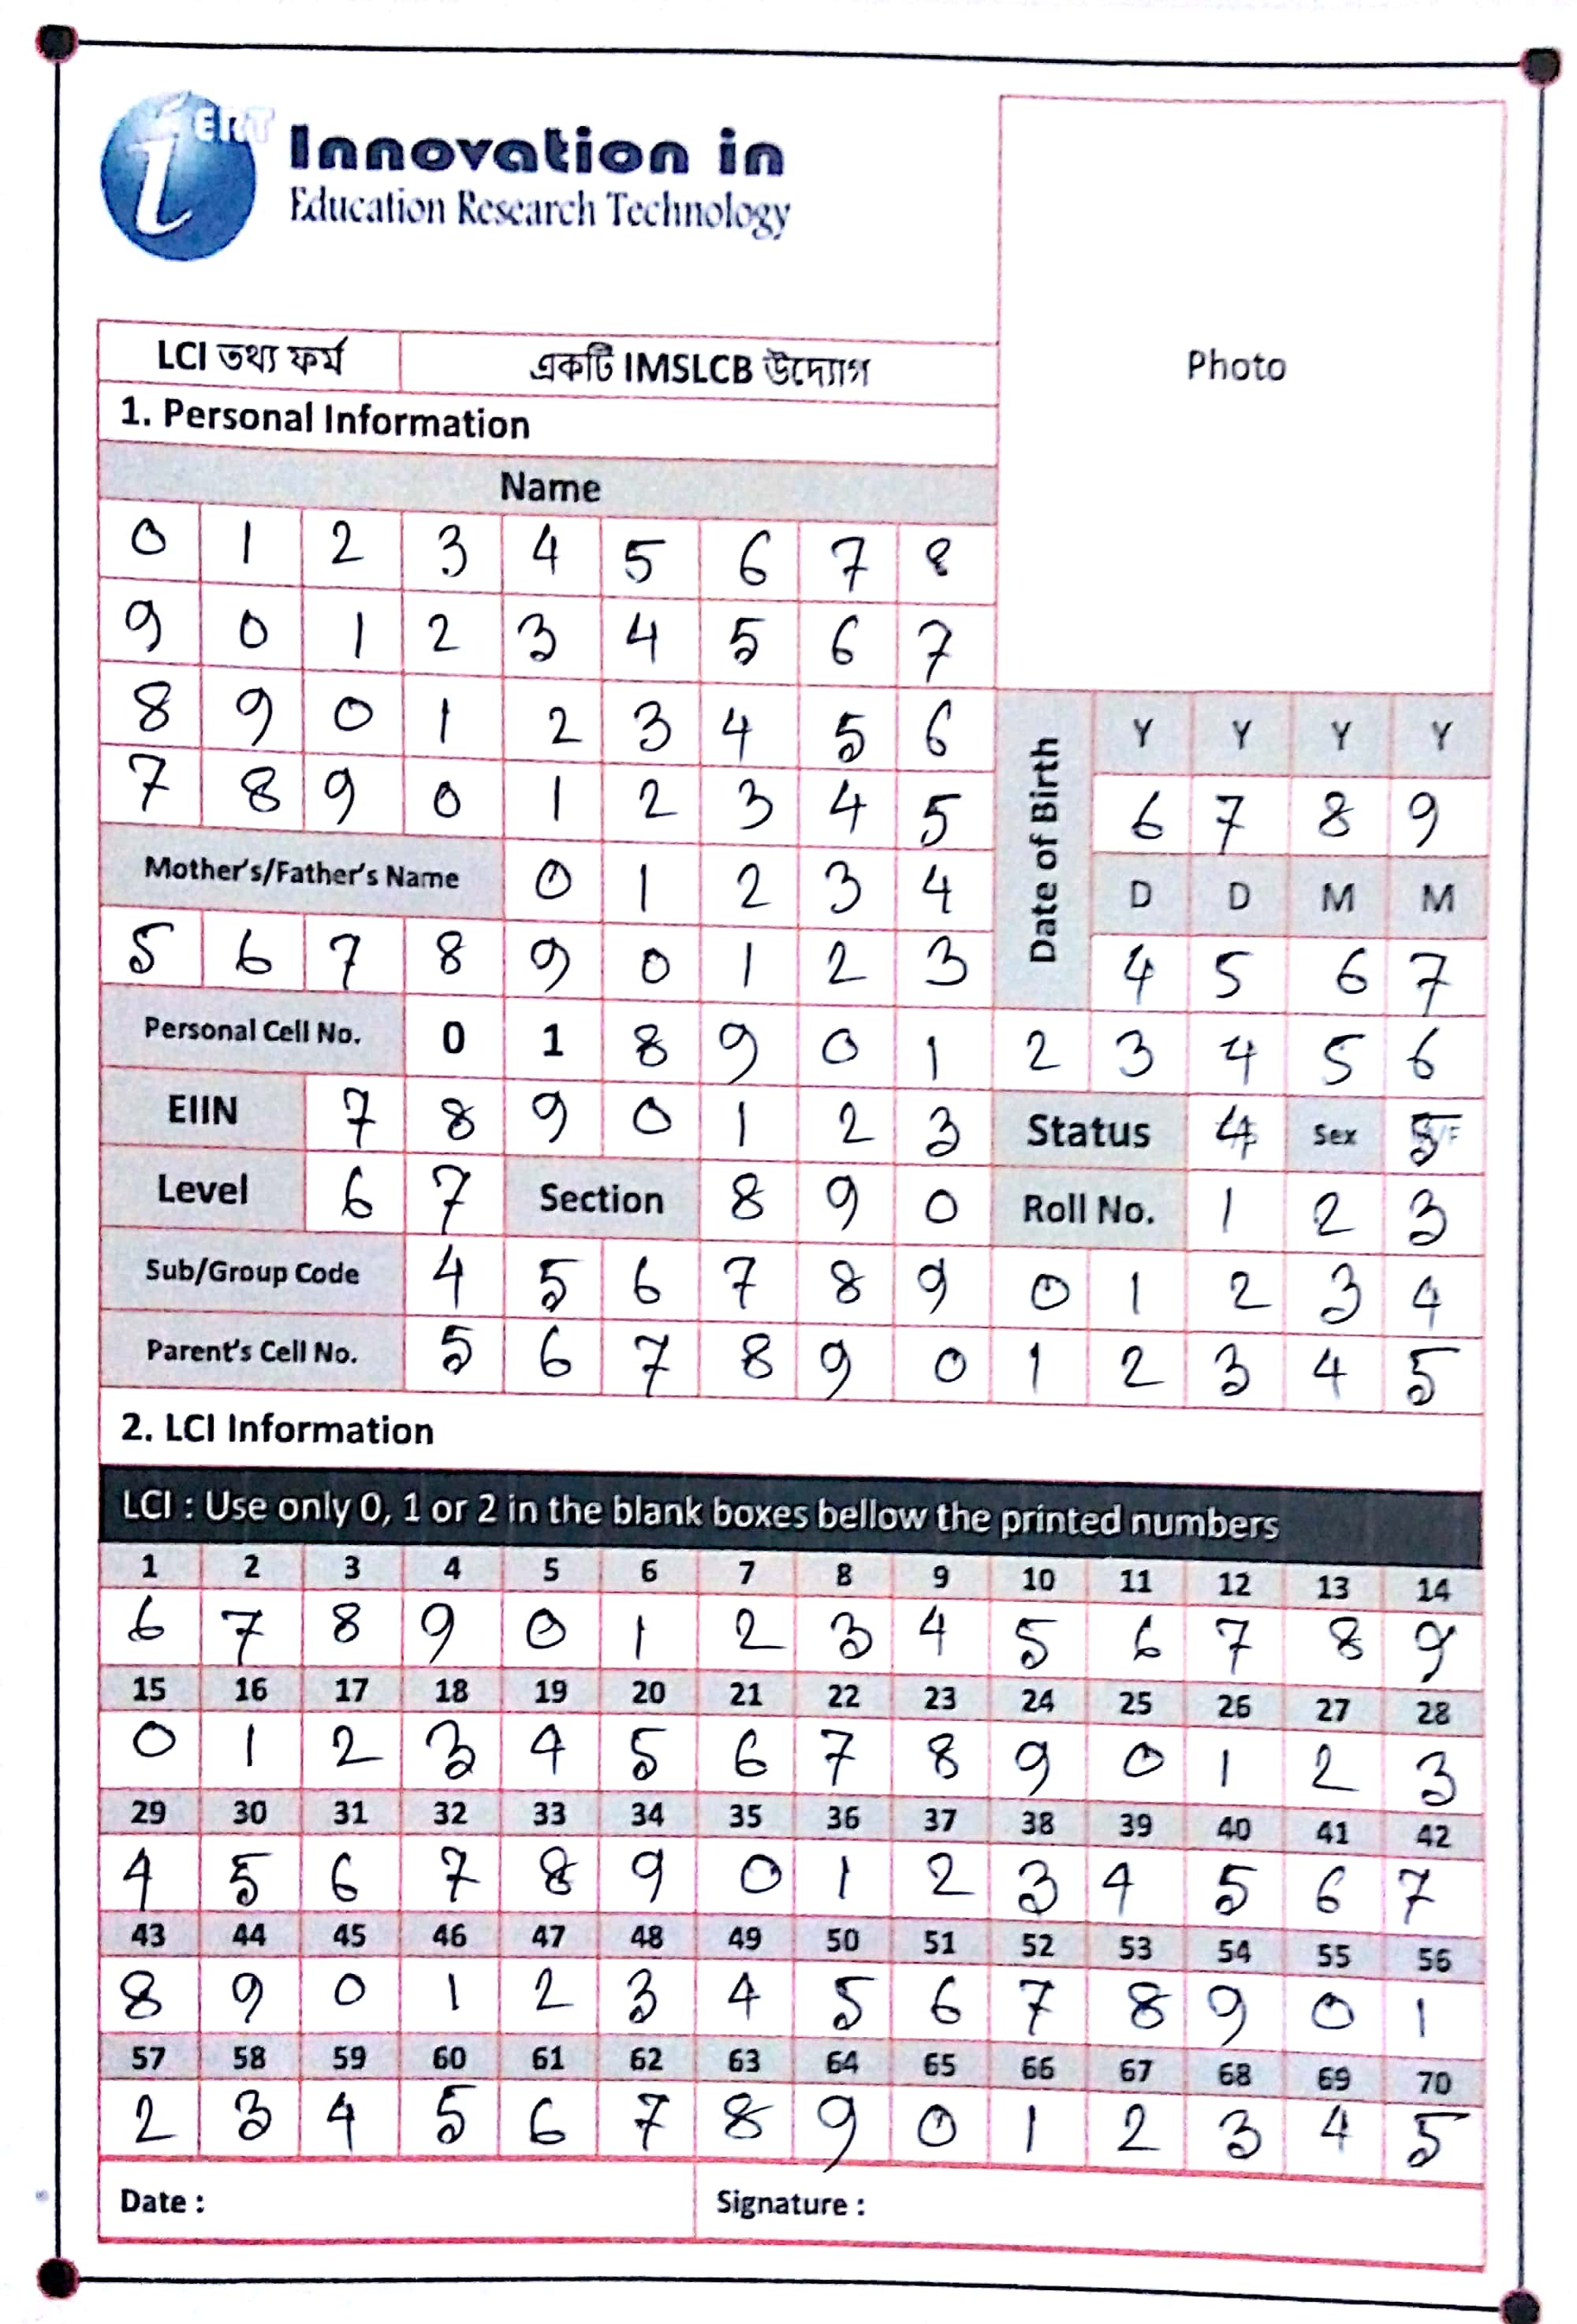 iERT Innovation in
Education Research Technology
Photo
LCI তথ্য ফর্ম একটি IMSLCB উদ্যোগ
1. Personal Information
Name
0 1 2 3 4 5 6 7 8
9 0 1 2 3 4 5 6 7
8 9 0 1 2 3 4 5 6
7 8 9 0 1 2 3 4 5
Date of Birth
Y Y Y Y
6 7 8 9
D D M M
4 5 6 7
Mother's/Father's Name 0 1 2 3 4
5 6 7 8 9 0 1 2 3
Personal Cell No. 0 1 8 9 0 1 2 3 4 5 6
EIIN 7 8 9 0 1 2 3 Status 4 Sex 5
Level 6 7 Section 8 9 0 Roll No. 1 2 3
Sub/Group Code 4 5 6 7 8 9 0 1 2 3 4
Parent's Cell No. 5 6 7 8 9 0 1 2 3 4 5
2. LCI Information
LCI : Use only 0, 1 or 2 in the blank boxes bellow the printed numbers
1 2 3 4 5 6 7 8 9 10 11 12 13 14
6 7 8 9 0 1 2 3 4 5 6 7 8 9
15 16 17 18 19 20 21 22 23 24 25 26 27 28
0 1 2 3 4 5 6 7 8 9 0 1 2 3
29 30 31 32 33 34 35 36 37 38 39 40 41 42
4 5 6 7 8 9 0 1 2 3 4 5 6 7
43 44 45 46 47 48 49 50 51 52 53 54 55 56
8 9 0 1 2 3 4 5 6 7 8 9 0 1
57 58 59 60 61 62 63 64 65 66 67 68 69 70
2 3 4 5 6 7 8 9 0 1 2 3 4 5
Date : Signature :